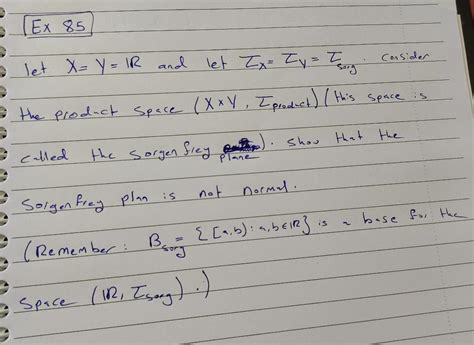 Ex 85
let X = Y = ℝ and let τ_X = τ_Y = τ_sorg. Consider
the product space (X×Y, τ_product) (this space is
called the Sorgenfrey plane). Show that the
Sorgenfrey plan is not normal.
(Remember: B_sorg = {[a,b) : a,b∈ℝ} is a base for the
space (ℝ, τ_sorg).)